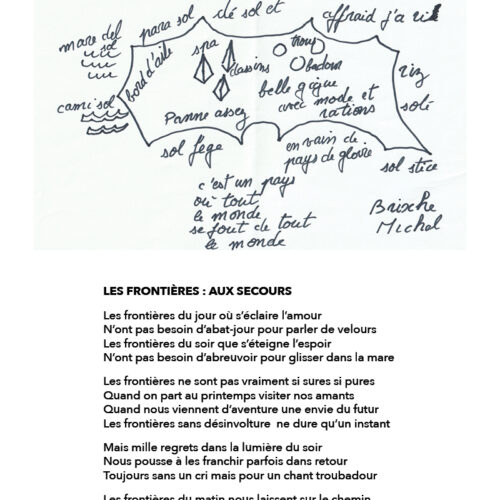 para sol
clé sol et
affraid j'a
mare del
sol
bord d'aile
spa
trou
badour
classins
belle gique
riz
cami sol
avec mode et
rations
solé
Panne assez
sol fège
en vain de
pays de gloire
sol stice
c'est un pays
où tout
le monde
se fout de tout
le monde
Brixhe
Michel
LES FRONTIÈRES : AUX SECOURS
Les frontières du jour où s'éclaire l'amour
N'ont pas besoin d'abat-jour pour parler de velours
Les frontières du soir que s'éteigne l'espoir
N'ont pas besoin d'abreuvoir pour glisser dans la mare
Les frontières ne sont pas vraiment si sures si pures
Quand on part au printemps visiter nos amants
Quand nous viennent d'aventure une envie du futur
Les frontières sans désinvolture  ne dure qu'un instant
Mais mille regrets dans la lumière du soir
Nous pousse à les franchir parfois dans retour
Toujours sans un cri mais pour un chant troubadour
Les frontières du matin nous laissent sur le chemin